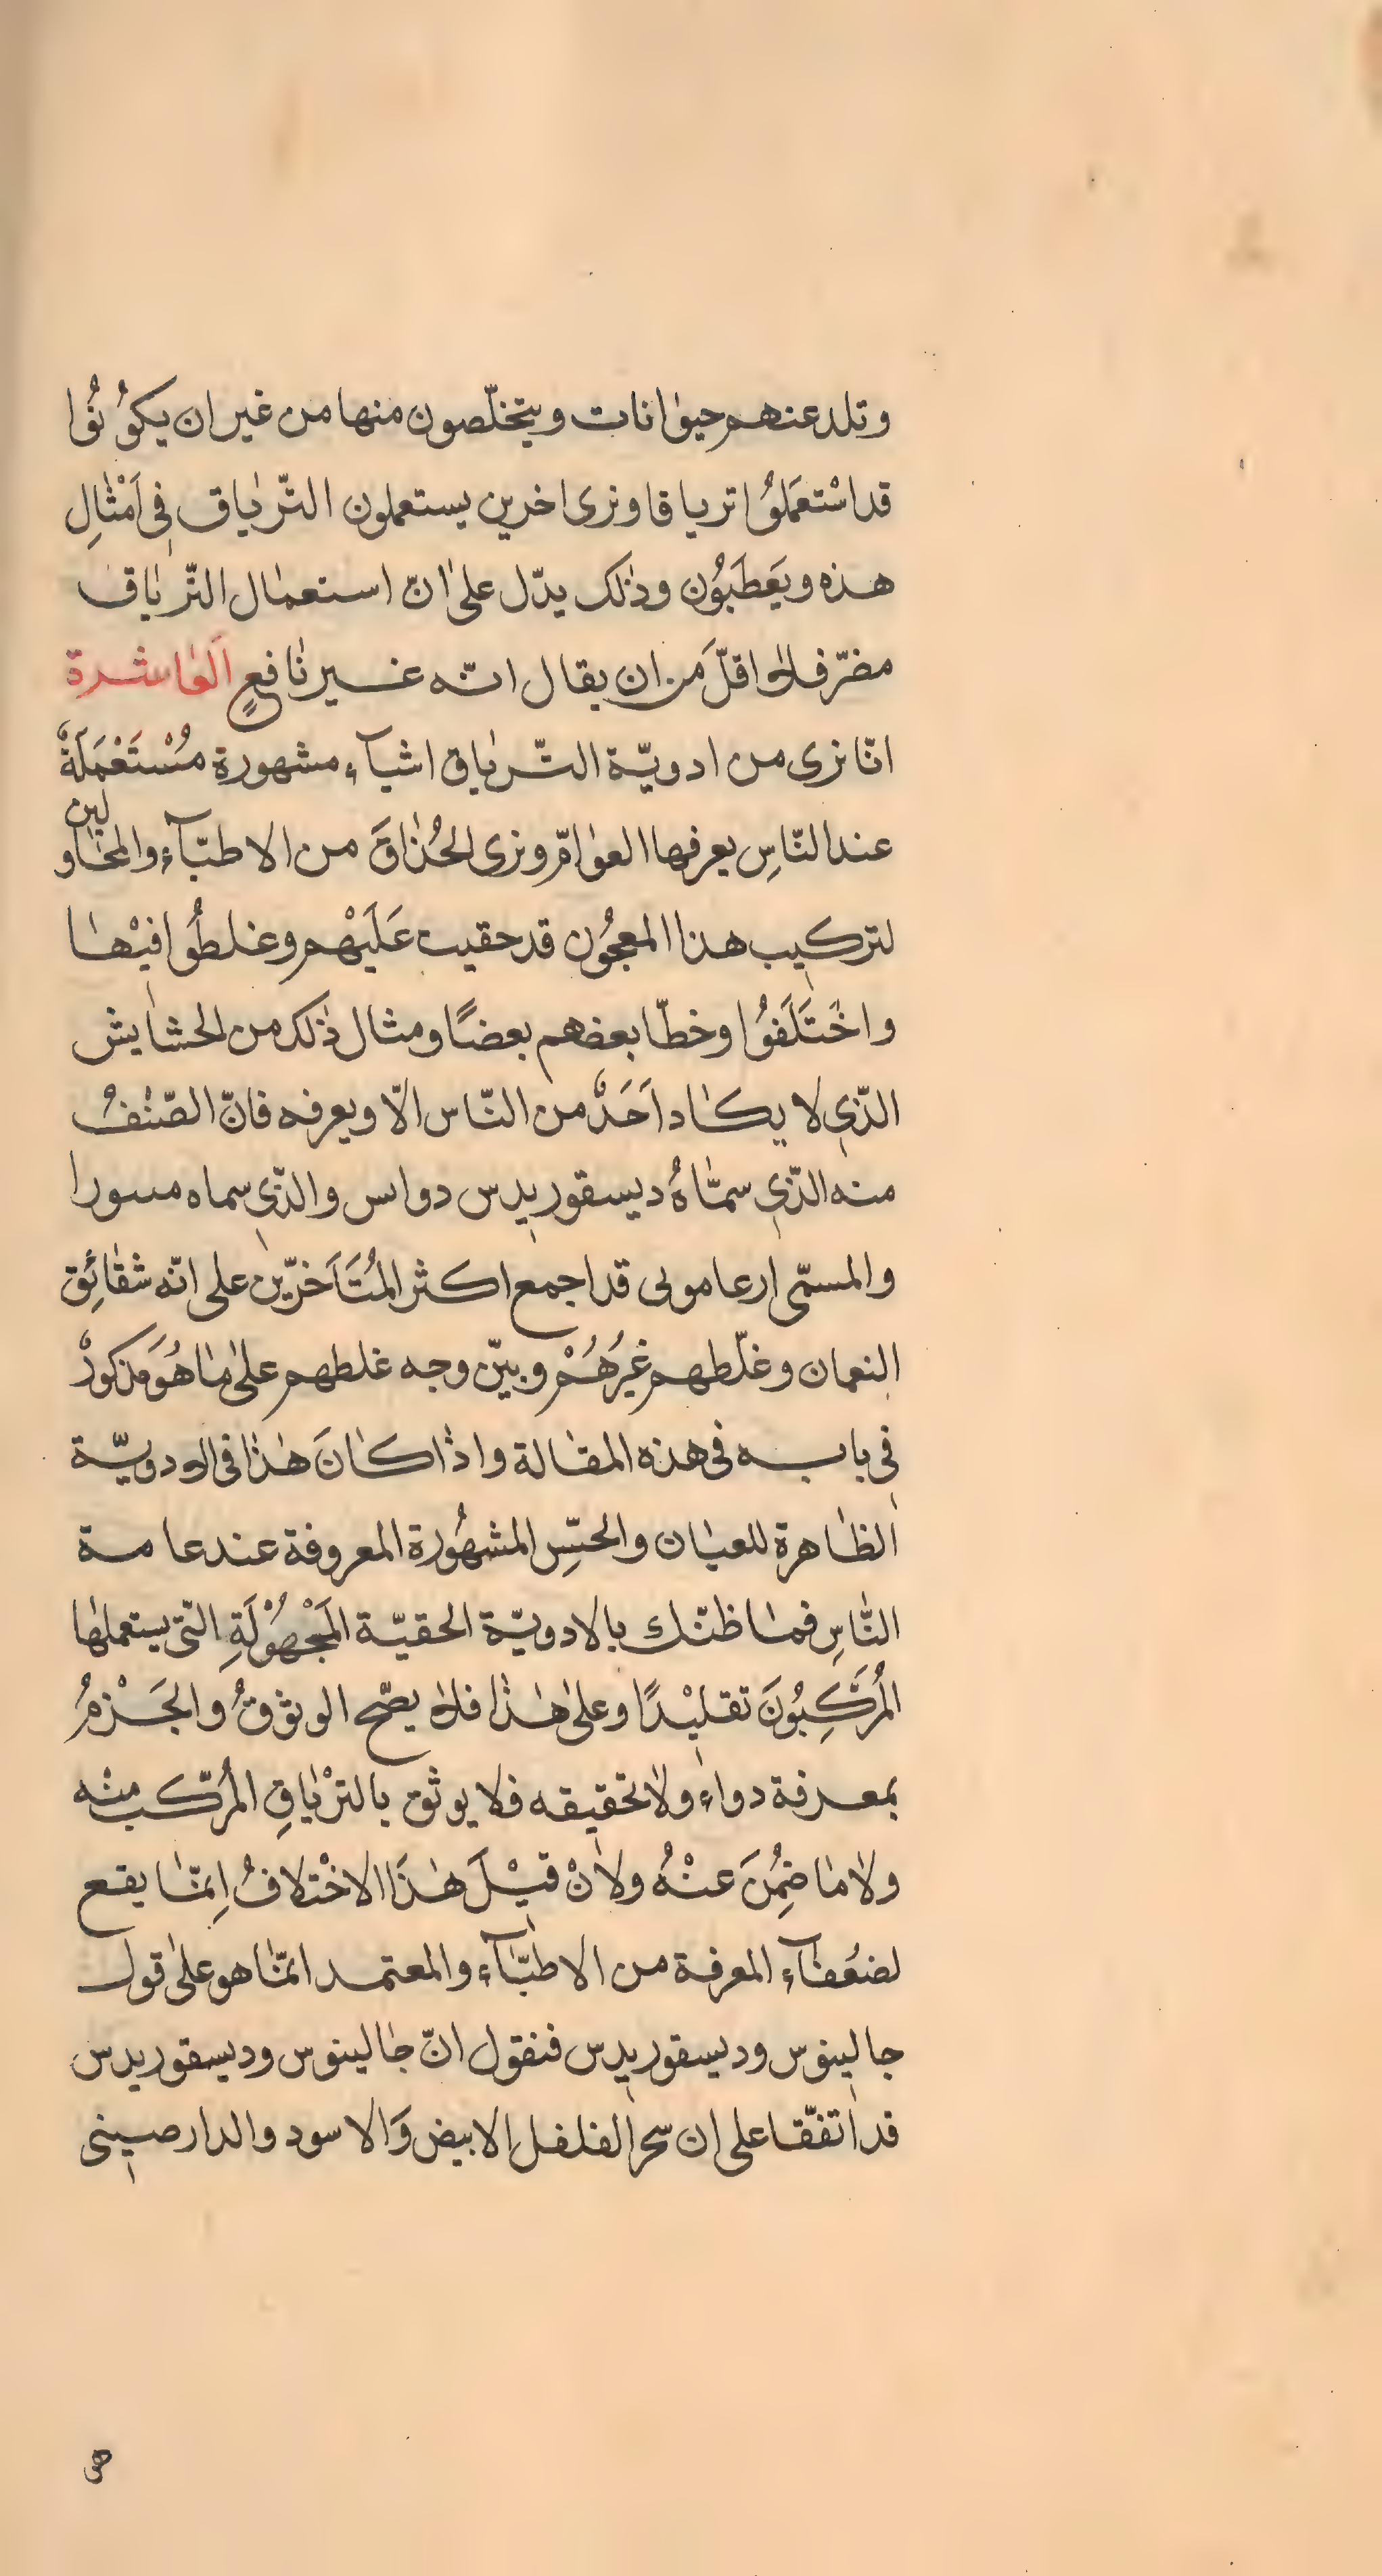 وتلدعنهم حيوٰانات ويتخلّصون منها من غير ان يكوُنوُا
قد اسْتعَملوُا ترياقا ونرى اخرين يستعملون التّريٰاق فى اَمْثٰالِ
هذه ويَعطَبوُن وذٰلك يدّل علىٰ انّ استعمٰال التّريٰاق
مضرّ فلا اقلّ من ان يقال انّه غير نٰافعٍ العٰاشرة
انّا نرى من ادويّة التّريٰاق اشيآء مشهورة مُسْتَعْمَلَةٌ
عند النّاسِ يعرفها العوٰامّ ونرى الحُذٰاقَ من الاطبّآء والمحٰاولين
لتركيب هذا المعجوُن قد حقيت عَلَيْهم وغلطوُا فيْهٰا
واخْتَلَفوُا وخطّا بعضهم بعضًا ومثال ذٰلك من الحشٰايش
الذّى لا يكٰاد اَحَدٌ من النّاس الّا ويعرفه فانّ الصّنٰفُ
منه الذّى سمّٰاهُ ديسقوريدس دواس والذّى سماه مسورا
والمسمّى ارعامونى قد اجمع اكثر المُتَأَخرّين على انّه شقٰائِق
النعمان وغلّطهم غيَرُهُمْ وبيّن وجه غلطهم علىٰ مٰا هُوَ مذكورٌ
فى بابه فى هذه المقٰالة واذٰا كٰانَ هٰذٰا فى الادويّة
الظٰاهرة للعيٰان والحسِّ المشهوُرة المعروفة عند عامة
النّٰاسِ فمٰا ظنّك بالادويّة الحقيّة المَجْهوُلَةِ التّى يستعملهٰا
المُرَكِّبوُنَ تقليْدًا وعلىٰ هٰذٰا فلاٰ يصّح الوثوقُ والجَزْمُ
بمعرفة دواء ولاٰ تحقيقه فلا يوثق بالترْيٰاقِ المُرّكب منْه
ولاٰ مٰا ضُمِنَ عنْهُ ولاٰنْ قيْلَ هٰذَا الاخْتلافُ اِنمّٰا يقع
لضعُفٰآء المعرفة من الاطبّٰآء والمعتمد انمّٰا هو علىٰ قول
جالينوس وديسقوريدس فنقول انّ جٰالينوس وديسقوريدس
قد اتفّقا على ان سحر الفلفل الابيض وَالاسود والدارصينى
هى